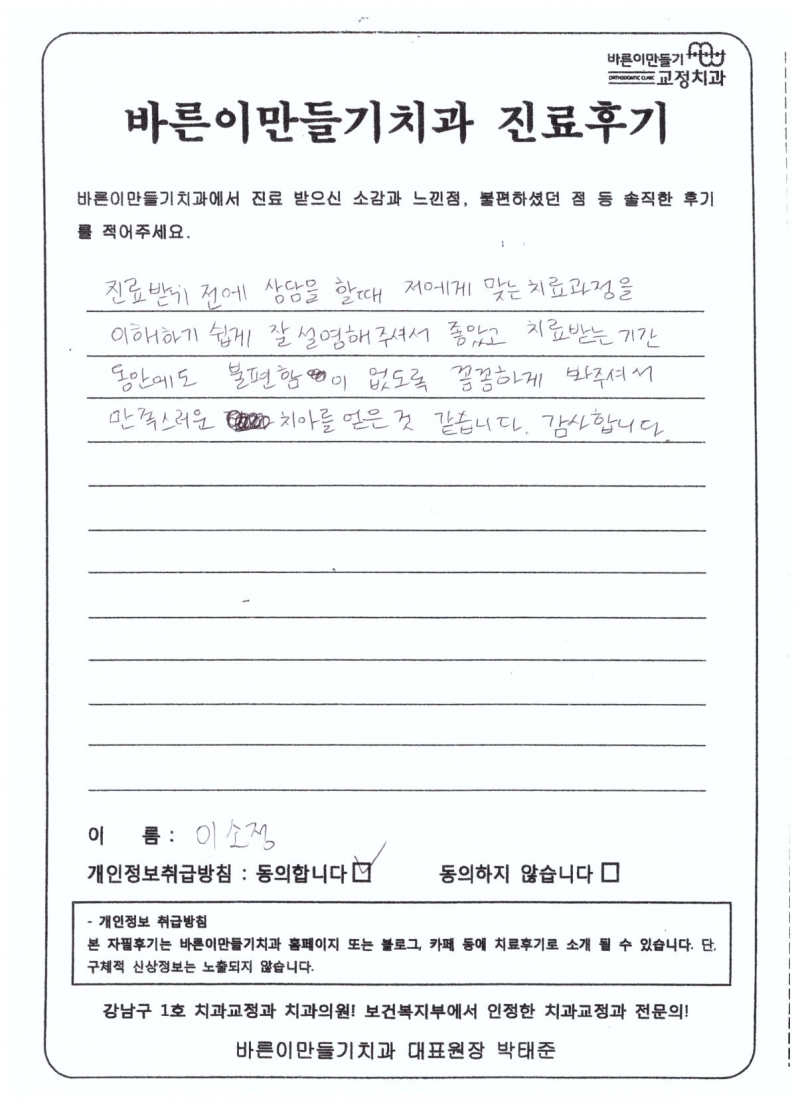 바른이만들기
ORTHODONTIC CLINIC 교정치과
바른이만들기치과 진료후기
바른이만들기치과에서 진료 받으신 소감과 느낀점, 불편하셨던 점 등 솔직한 후기
를 적어주세요.
진료받기 전에 상담을 할때 저에게 맞는 치료과정을
이해하기 쉽게 잘 설명해주셔서 좋았고 치료받는 기간
동안에도 불편함이 없도록 꼼꼼하게 봐주셔서
만족스러운 치아를 얻은것 같습니다. 감사합니다.
이 름 : 이소정
개인정보취급방침 : 동의합니다 동의하지 않습니다
- 개인정보 취급방침
본 자필후기는 바른이만들기치과 홈페이지 또는 블로그, 카페 등에 치료후기로 소개 될 수 있습니다. 단,
구체적 신상정보는 노출되지 않습니다.
강남구 1호 치과교정과 치과의원! 보건복지부에서 인정한 치과교정과 전문의!
바른이만들기치과 대표원장 박태준